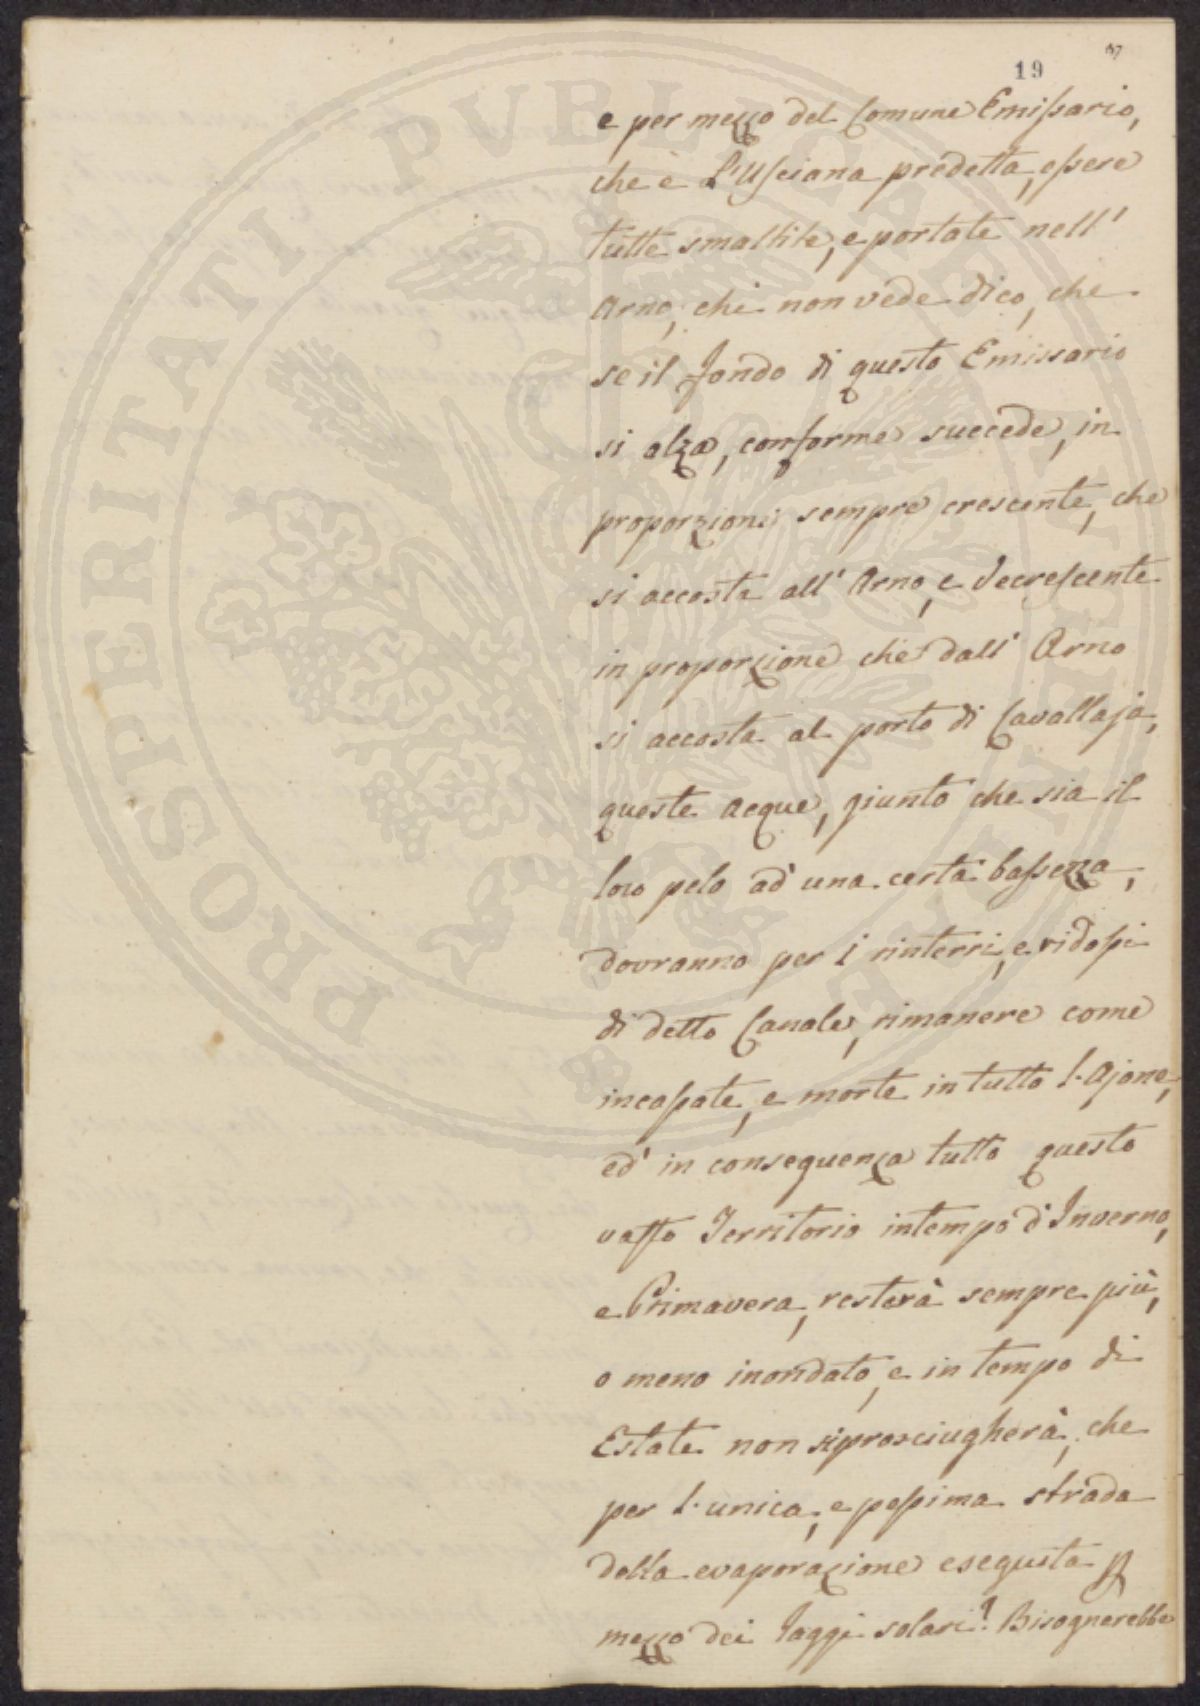 19
e per mezzo del Comune Emissario,
che è L'Usciana predetta, essere
tutte smaltite, e portate nell'
Arno; chi non vede dico, che
se il fondo di questo Emissario
si alza, conforme succede, in
proporzioni sempre crescente, che
si accosta all' Arno, e decrescente
in proporzione che dall' Arno
si accosta al porto di Cavallaja,
queste acque, giunto che sia il
loro pelo ad' una certa bassezza,
dovranno per i rinterri, e ridossi
di detto Canale, rimanere come
incassate, e morte in tutto l'Ajone,
ed' in conseguenza tutto questo
vasto Territorio in tempo d'Inverno,
e Primavera, resterà sempre più,
o meno inondato, e in tempo di
Estate non si prosciugherà, che
per l'unica, e pessima strada
della evaporazione eseguita p
mezzo dei raggi solari? Bisognerebbe
PROSPERITATI PVBLICAE AVGENDAE